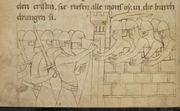 den cristin, sie riefen alle monsoy, in die burch
drungen si.